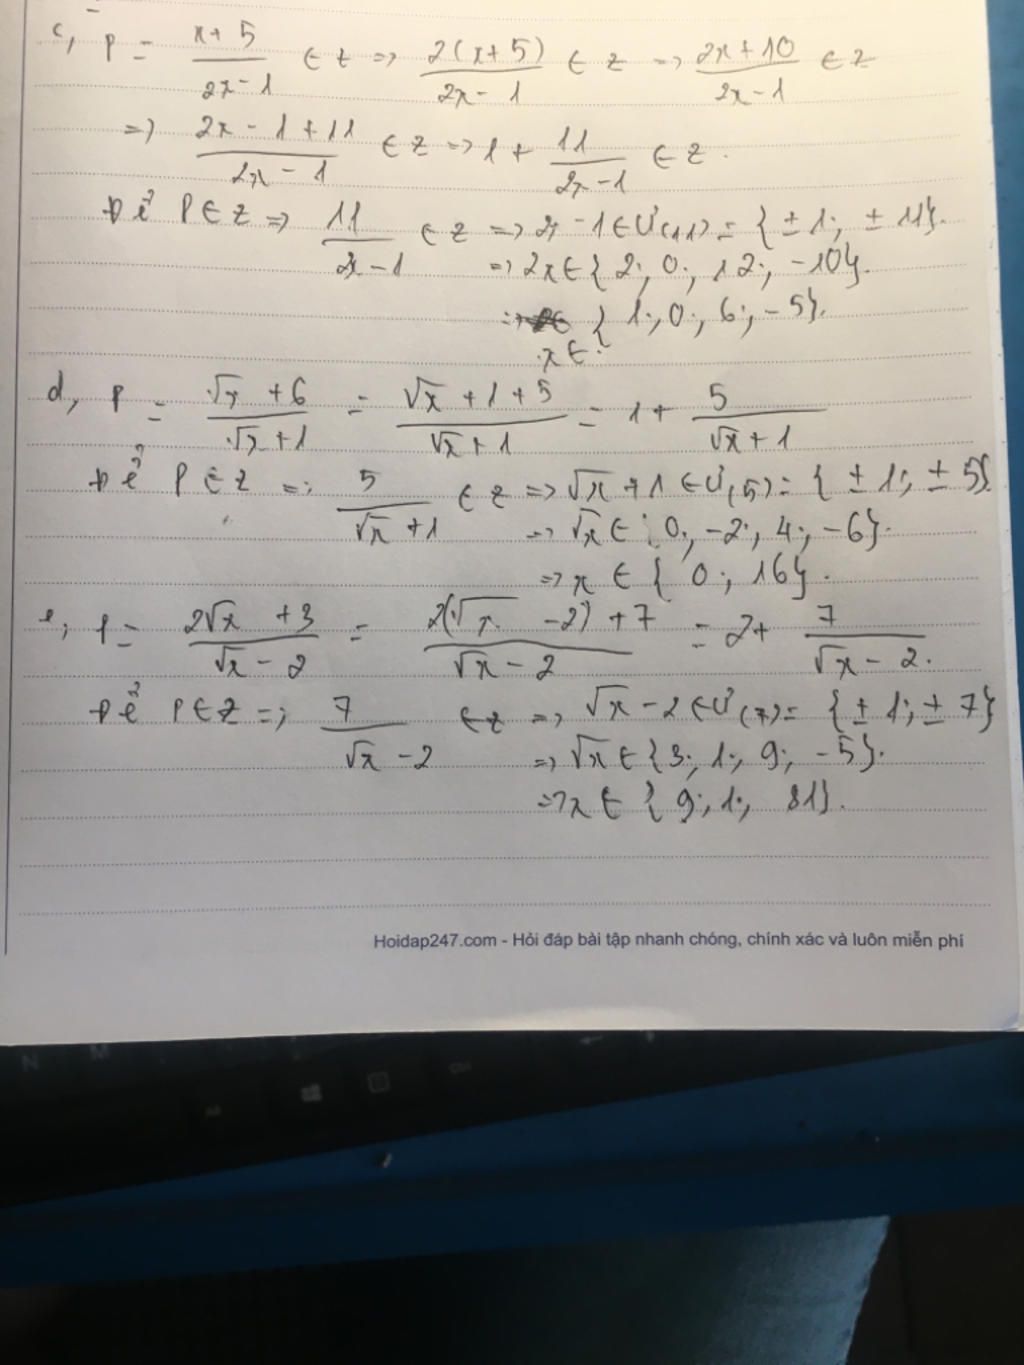 c, P = x+5/2x-1 ∈ Z => 2(x+5)/2x-1 ∈ Z => 2x+10/2x-1 ∈ Z
=> 2x-1+11/2x-1 ∈ Z => 1 + 11/2x-1 ∈ Z.
Để P ∈ Z => 11/2x-1 ∈ Z => 2x-1 ∈ Ư(11) = {±1; ±11}.
=> 2x ∈ {2; 0; 12; -10}.
=> {1; 0; 6; -5}.
x ∈
d, P = √x+6/√x+1 = √x+1+5/√x+1 = 1 + 5/√x+1
Để P ∈ Z => 5/√x+1 ∈ Z => √x+1 ∈ Ư(5) = {±1; ±5}
=> √x ∈ {0; -2; 4; -6}.
=> x ∈ {0; 16}.
e, P = 2√x+3/√x-2 = 2(√x-2)+7/√x-2 = 2 + 7/√x-2.
Để P ∈ Z => 7/√x-2 ∈ Z => √x-2 ∈ Ư(7) = {±1; ±7}
=> √x ∈ {3; 1; 9; -5}.
=> x ∈ {9; 1; 81}.
Hoidap247.com - Hỏi đáp bài tập nhanh chóng, chính xác và luôn miễn phí